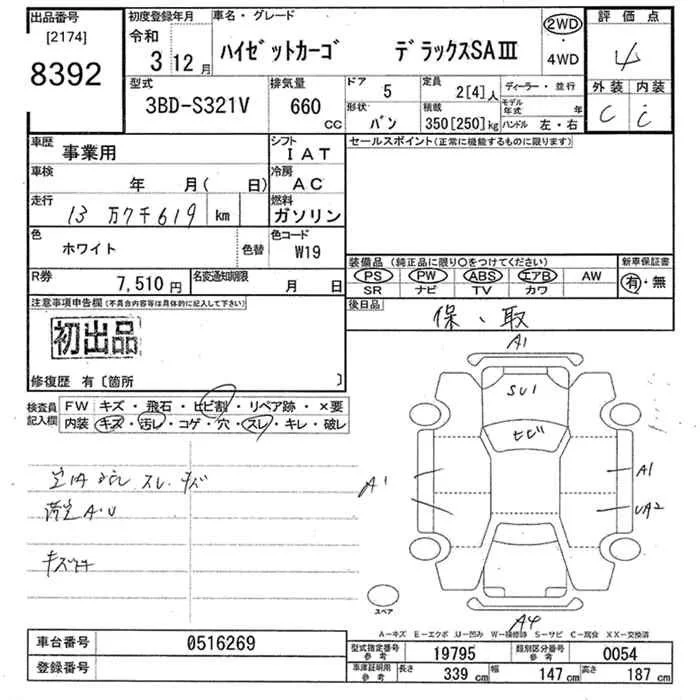 出品番号
[2174]
8392
初度登録年月
令和
3 12月
車名・グレード
ハイゼットカーゴ デラックスSAⅢ
2WD
・
4WD
評価点
4
外装 内装
C C
型式
3BD-S321V
排気量
660 CC
ドア
5
定員
2[4]人
形状
バン
積載
350[250]kg
ディーラー・並行
モデル年式 年
ハンドル 左・右
車歴
事業用
シフト
IAT
車検
年 月( 日)
冷房
AC
走行
13万7千619 km
燃料
ガソリン
色
ホワイト
色替
色コード
W19
R券
7,510円
名変通知期限
月 日
セールスポイント(正常に機能するものに限ります)
装備品(純正品に限り〇をつけてください)
PS PW ABS エアB AW
SR ナビ TV カワ
新車保証書
有・無
後日品
保、取
注意事項申告欄(不具合内容等は具体的に記入して下さい)
初出品
修復歴 有〔箇所 〕
検査員記入欄
FW キズ・飛石・ヒビ割・リペア跡・×要
内装 キズ・汚レ・コゲ・穴・スレ・キレ・破レ
スレ キズ
A・U
キズ
A1
SU1
ヒビ
A1
A1
UA2
A4
スペア
A-キズ E-エクボ U-凹み W-補修跡 S-サビ C-腐食 XX-交換済
車台番号
0516269
登録番号
型式指定番号
参考
19795
類別区分番号
参考
0054
車庫証明用
参考
長さ
339 cm
幅
147 cm
高さ
187 cm